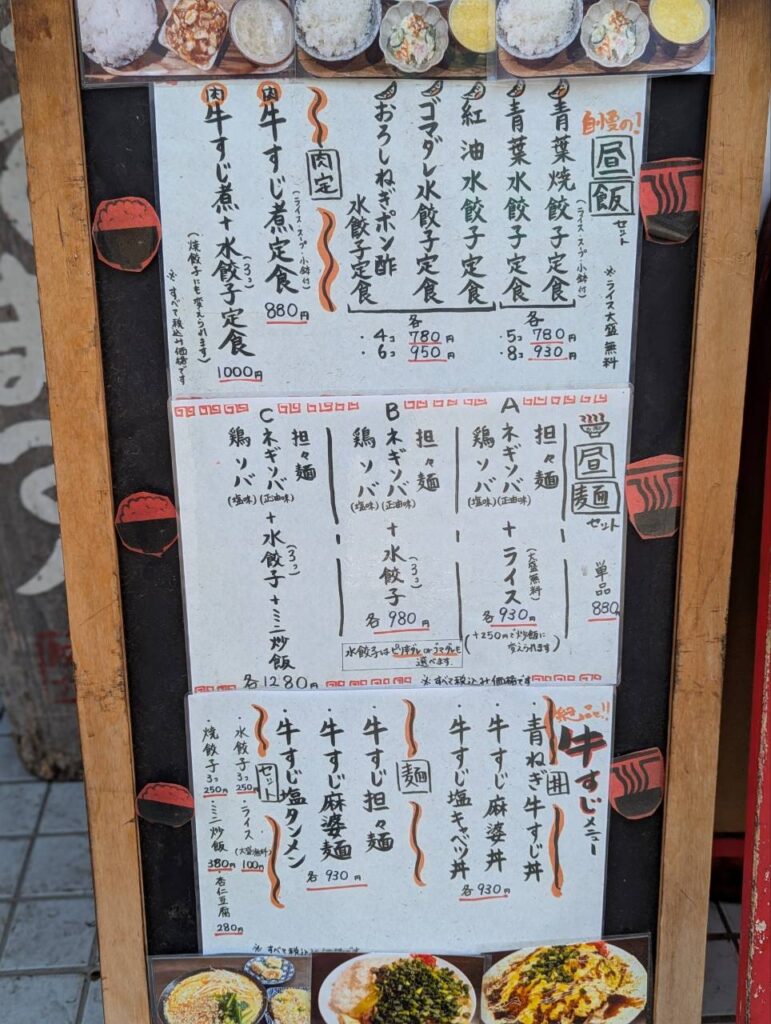 自慢の!
昼飯セット
※ライス大盛無料
青葉焼餃子定食
(ライス・スープ・小鉢付)
青葉水餃子定食
各
・5コ 780円
・8コ 930円
紅油水餃子定食
ゴマダレ水餃子定食
おろしねぎポン酢
水餃子定食
各
・4コ 780円
・6コ 950円
肉定
肉 牛すじ煮定食
(ライス・スープ・小鉢付)
880円
肉 牛すじ煮+水餃子定食
(3コ)
1000円
(焼餃子にも変えられます)
※すべて税込み価格です
昼麺セット
単品
880
A
担々麺
ネギソバ(正油味)
鶏ソバ(塩味)
+ライス
(大盛無料)
各930円
(+250円で炒飯に
変えられます)
B
担々麺
ネギソバ(正油味)
鶏ソバ(塩味)
+水餃子
(3コ)
各980円
水餃子はピリ辛ダレ or ゴマダレを
選べます。
C
担々麺
ネギソバ(正油味)
鶏ソバ(塩味)
+水餃子+ミニ炒飯
(3コ)
各1280円
※すべて税込み価格です
絶品で!!
牛すじメニュー
丼
青ねぎ牛すじ丼
・牛すじ麻婆丼
・牛すじ塩キャベツ丼
各930円
麺
・牛すじ担々麺
牛すじ麻婆麺
・牛すじ塩タンメン
各930円
セット
・水餃子3コ 250円
・ライス(大盛無料) 100円
・焼餃子3コ 250円
・ミニ炒飯 380円
・杏仁豆腐 280円
※すべて税込み価格です